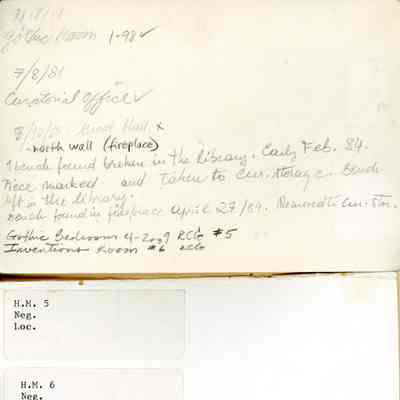 7/18/81
Gothic Room 1-98✓
7/8/81
Curatorial Office✓
Great Hall x
north wall (fireplace)
1 bench found broken in the library. Early Feb. 84.
Piece marked and taken to Cur. storage. Bench
left in the library.
bench found in fireplace April 27/89. Returned to Cur. Stor.
Gothic Bedroom 4-2009 RCG #5
Inventions Room #6 RCG
H.M. 5
Neg.
Loc.
H.M. 6
Neg.